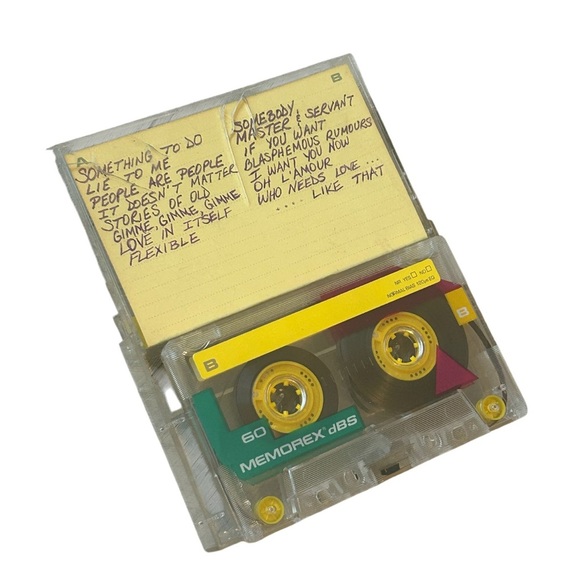 B
A
SOMETHING TO DO
LIE TO ME
PEOPLE ARE PEOPLE
IT DOESN'T MATTER
STORIES OF OLD
GIMME, GIMME, GIMME
LOVE IN ITSELF
FLEXIBLE
SOMEBODY
MASTER & SERVANT
IF YOU WANT
BLASPHEMOUS RUMOURS
I WANT YOU NOW
OH L'AMOUR
WHO NEEDS LOVE ...
.... LIKE THAT
B
B
60
MEMOREX dBS